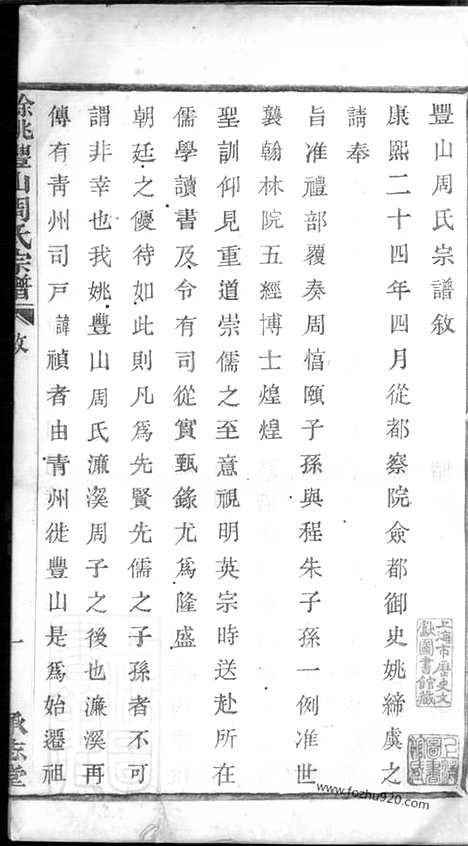 豐山周氏宗譜敘
康熙二十四年四月從都察院僉都御史姚締虞之
請奉
旨准禮部覆奏周惇頤子孫與程朱子孫一例准世
襲翰林院五經博士煌煌
聖訓仰見重道崇儒之至意視明英宗時送赴所在
儒學讀書及令有司從實甄錄尤為隆盛
朝廷之優待如此則凡為先賢先儒之子孫者不可
謂非幸也我姚豐山周氏濂溪周子之後也濂溪再
傳有青州司戶諱禎者由青州徙豐山是為始遷祖
餘姚豐山周氏宗譜
敘
一
承志堂
上海市歷史文
獻圖書館藏
www.fozhu920.com